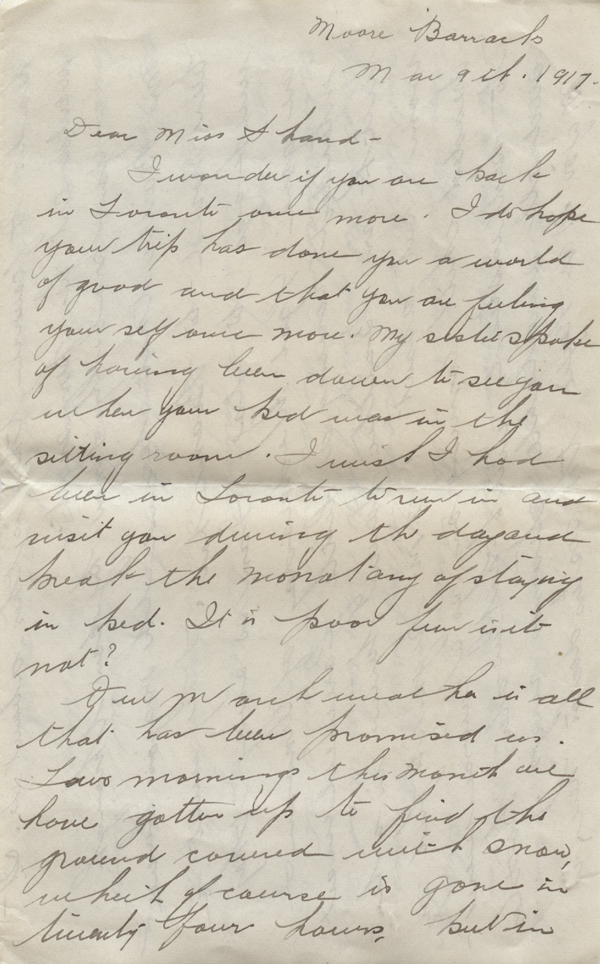 Moore Barracks
Mar 9th. 1917.
Dear Miss Shand -
I wonder if you are back
in Toronto once more. I do hope
your trip has done you a world
of good and that you are feeling
yourself once more. My sister spoke
of having been down to see you
when your bed was in the
sitting room. I wish I had
been in Toronto to run in and
visit you during the day and
break the monotany of staying
in bed. It is poor fun is it
not?
Our March weather is all
that has been promised us.
Two mornings this month we
have gotten up to find the
ground covered with snow,
which of course is gone in
twenty four hours, but in